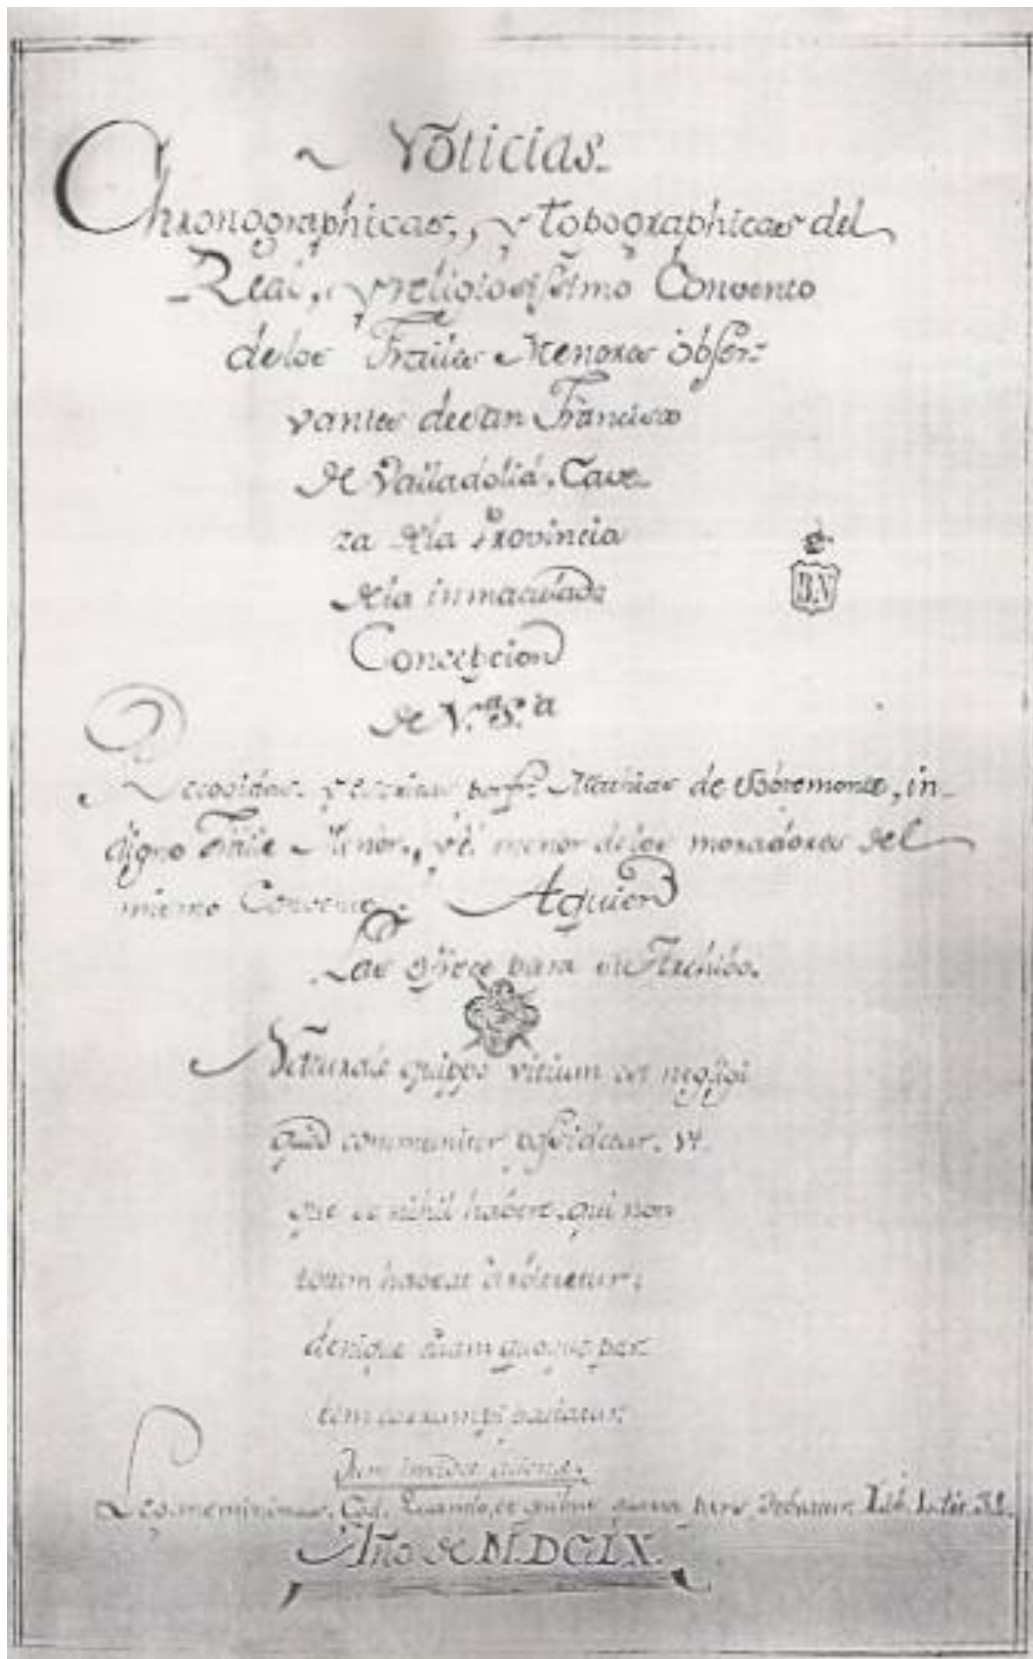 Noticias
Chronographicas, y topographicas del
Real, y religiosissimo Convento
delos Frailes Menores obser-
vantes de san Francisco
de Valladolid. Cave-
za dela Provincia
dela inmaculada
Concepcion
de N.ª S.ª
Recogidas y escritas por fr. Mathias de Sobremonte, in-
digno fraile Menor, y el menor delos moradores del
mismo Convento. Aquien
Las ofrece para su Archibo.
Naturale quippe vitium est negligi
quod communiter possidetur. Vt
que se nihil habere, qui non
totum habeat arbitretur;
denique suam quoque par-
tem corrumpi patiatur
Dum invidet alienæ.
Leg. meminimus. Cod. Quando, et quibus quarta pars debetur. Lib. 10. tit.
Año de M.DCLX.
BN